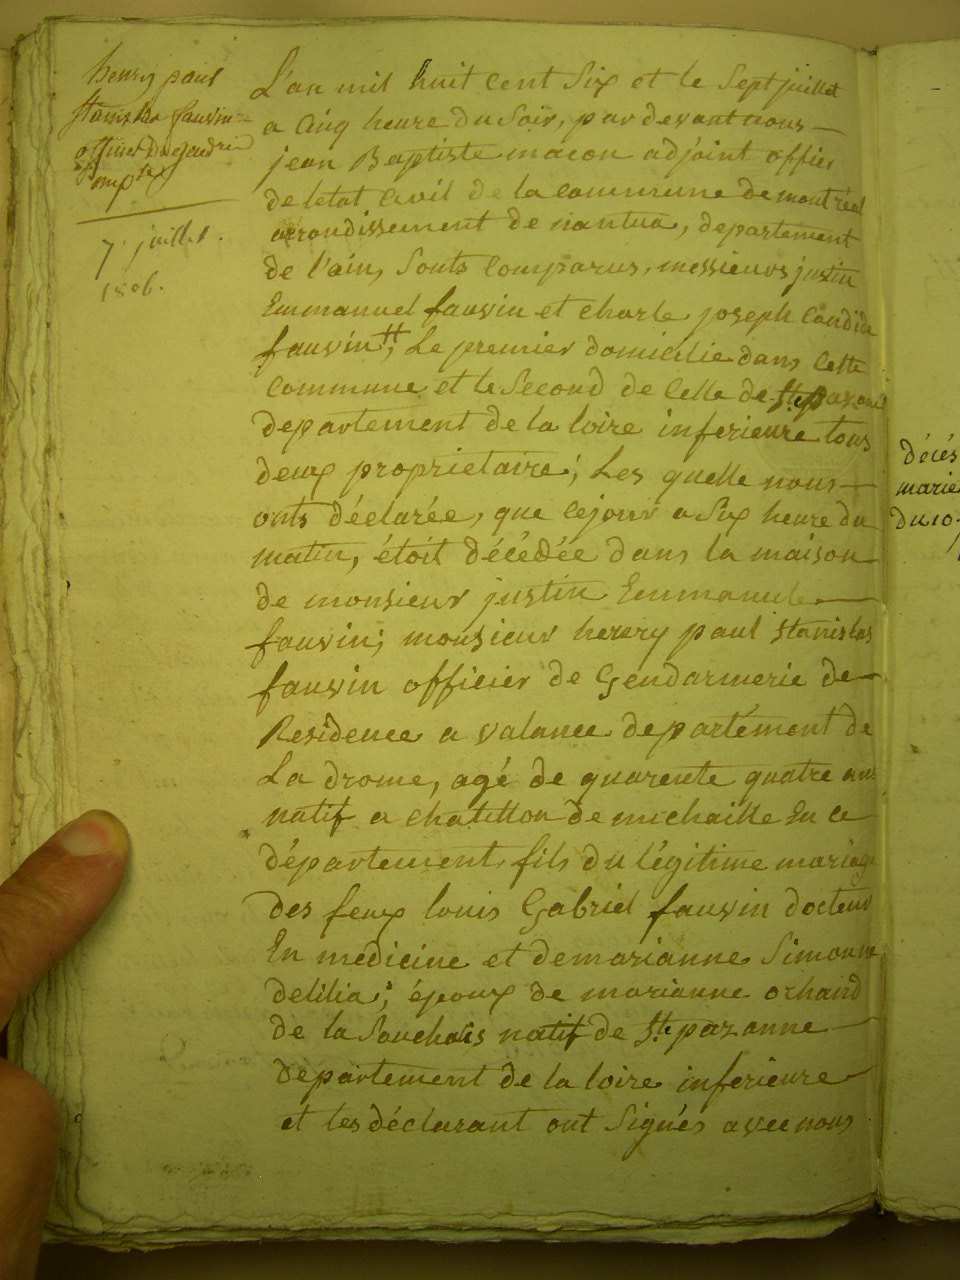 henry paul
Stanislas fauvin
officier de gendrie
7 juillet
1806.
L'an mil huit cent Six et le Sept juillet
a Cinq heure du Soir, par devant nous
jean Baptiste macon adjoint officier
de letat Civil de la commune de montréal
arondissement de nantua, departement
de l'ain, Sonts Comparus, messieurs justin
Emmanuel fauvin et charle joseph Candide
fauvin, Le premier domicilie dans Cette
Commune et le Second de Celle de Ste pazanne
departement de la loire inferieure tous
deux proprietaire; Les quelle nous
onts déclarée, que Cejour a Six heure du
matin, étoit décédée dans la maison
de monsieur justin Emmanuel
fauvin; monsieur henry paul Stanislas
fauvin officier de Gendarmerie de
Residence a valance departement de
La drome, agé de quarente quatre ans
natif a chatillon de michaille En ce
département, fils du légitime mariage
des feux louis Gabriel fauvin docteur
En medicine et demarianne Simonne
delilia; époux de marianne ochaid
de la Souchais natif de Ste pazanne
departement de la loire inferieure
et les déclarant ont Signés avec nous
décés
marie
du 10